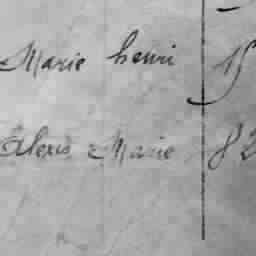 Marie henri 15
Alexis Marie 82